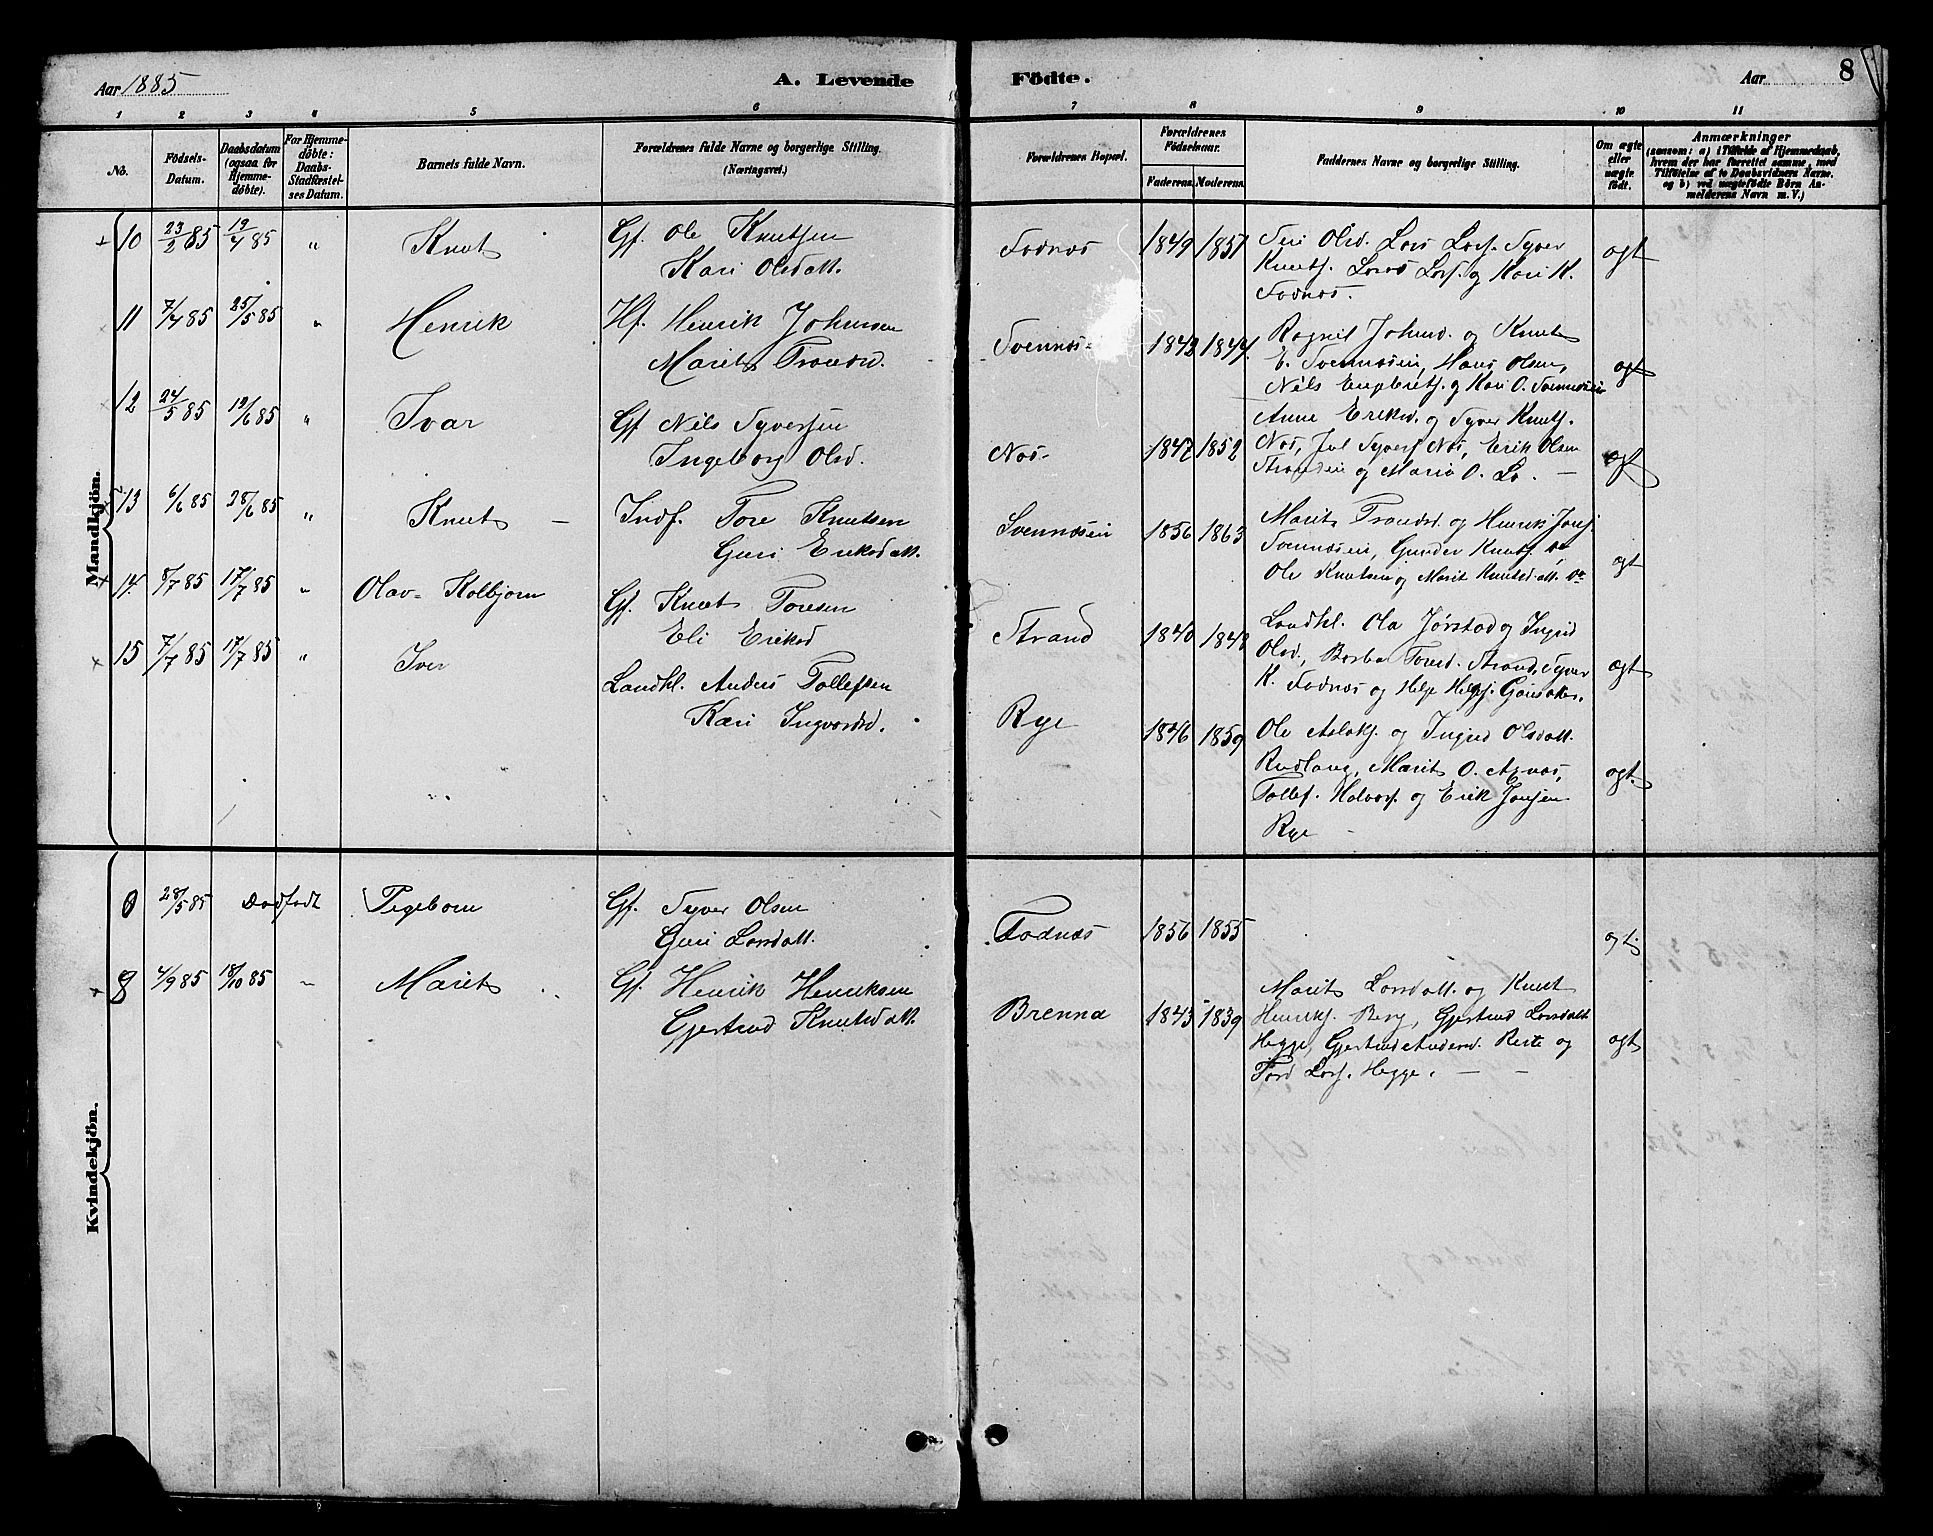 Aar 1885
A. Levende
Födte.
Aar
8
1 2 3 4 5 6 7 8 9 10 11
No.
Födsels-Datum.
Daabsdatum (ogsaa for Hjemmedöbte).
For Hjemmedöbte: Daabs-Stadfæstelses Datum.
Barnets fulde Navn.
Forældrenes fulde Navne og borgerlige Stilling.
(Næringsvei.)
Forældrenes Bopæl.
Forældrenes Födselsaar.
Faderens. Moderens.
Faddernes Navne og borgerlige Stilling.
Om ægte eller uægte födt.
Anmærkninger
(saasom: a) i Tilfælde af Hjemmedaab,
hvem der har forrettet samme, med
Tilföielse af to Daabsvidners Navne,
og b) ved uægtefödte Börn Anmelderens Navn m. V.)
Mandkjön.
10 23/2 85 19/4 85 " Knut Gf. Ole Knutsen
Kari Olsdatt. Fodnæs 1849 1851
Siri Olsd. Lars Larsf. Syver
Knutf. Lars Larsf. og Kari K.
Fodnæs. ægt
11 7/4 85 25/5 85 " Henrik Hf. Henrik Johnsen
Marit Trondsd. Svennæs 1842 1844
Ragnil Johnsd. og Knut
E. Svennæsein, Hans Olsen,
Nils Engebretsf. og Kari O. Svennæsein ægt
12 24/5 85 19/6 85 " Ivar Gf Nils Syversen
Ingeborg Olsd. Næs 1847 1852
Anne Eriksd. og Syver Knutf.
Næs, Jul Syversf Næs, Erik Olsen
Stranden og Maria O. Lo. ægt
13 6/6 85 28/6 85 " Knut Indf. Tore Knutsen
Guri Eriksdatt. Svennæsein 1856 1863
Marit Trondsd. og Henrik Jonsf
Svennæsein, Gunder Knutsf do
Ole Knutsen og Marit Knutsdatt. do ægt
14 8/7 85 17/7 85 " Olav Kolbjørn Gf. Knut Toresen
Eli Eriksd Strand 1840 1843
Landhl. Ola Jørstad og Ingrid
Olsd, Barbra Toresd. Strand, Syver
K. Fodnæs og Helge Helgesf. Gausaker. ægt
15 7/7 85 17/7 85 " Iver Landhl. Anders Tollefsen
Kari Ingvardsd. Rye 1846 1859
Ole Aslaksf. og Ingrid Olsdatt.
Rudlang, Marit O. Agnæs,
Tollef. Halvorsf. og Erik Jonsen
Rye ægt.
Kvindekjön.
0 28/5 85 Dødfødt Pigebarn Gf. Syver Olsen
Guri Larsdatt. Fodnæs 1856 1855 ægt.
8 4/9 85 18/10 85 " Marit Gf. Henrik Henriksen
Gjertrud Knutsdatt. Brenna 1843 1839
Marit Larsdatt. og Knut
Henriksf. Berg, Gjertrud Larsdatt
Hegge, Gjertrud Andersd. Reste og
Tord Larsf. Hegge. ægt